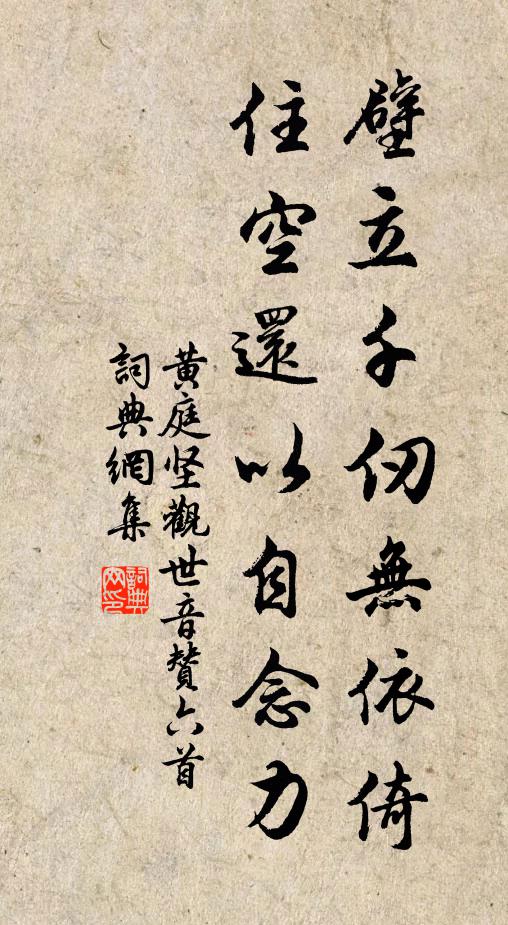 壁立千仞無依倚
住空還以自念力
黄庭坚觀世音贊六首
詞典網集
詞典網印